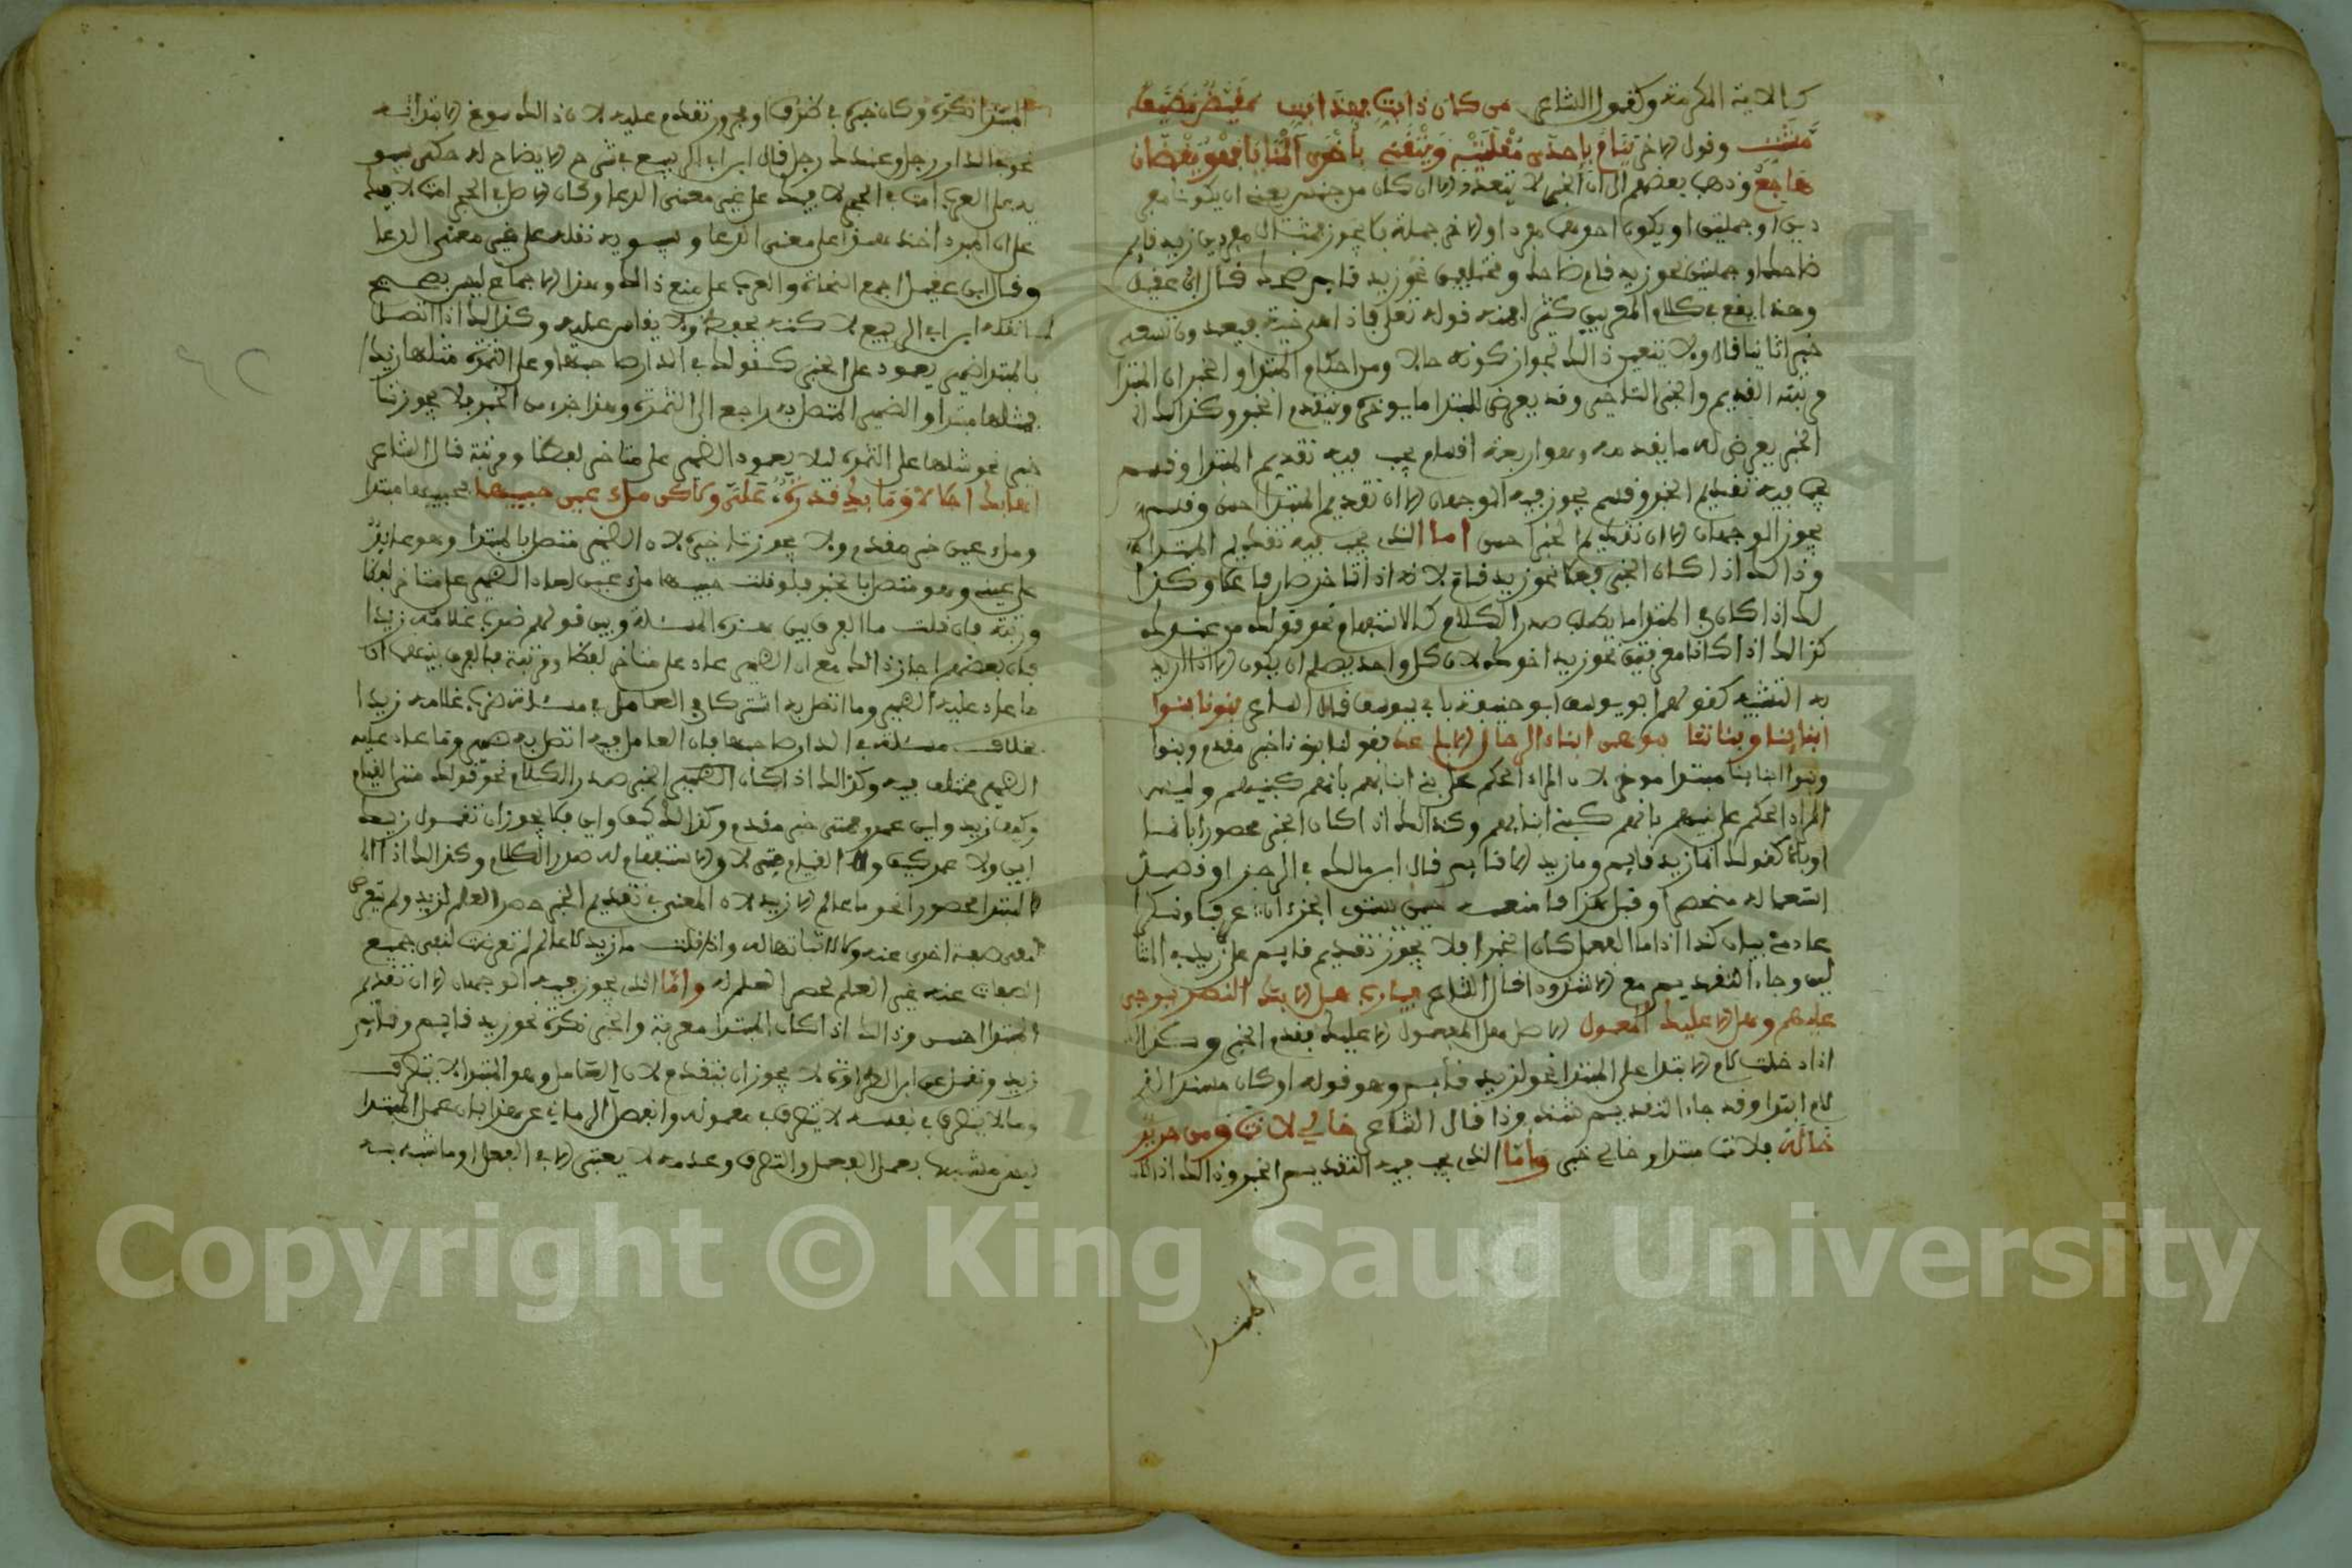 كالاية الكريمة وكقول الشاعر من كان ذابت فهذا بتي مقيظ مصيف
مشتي وقول الاخر ينام بإحدى مقلتيه ويتقي بأخرى المنايا فهو يقظان
هاجع وذهب بعضهم الى ان الخبر لا يتعدد الا ان كان من جنس يعني ان يكونا مفر
دين او جملتين او يكون احدهما مفردا والاخر جملة فلا يجوز فمثال مفردين زيد قايم
ضاحك او جملتين نحو زيد قام ضاحك ومختلفين نحو زيد قايم ضحك قال ابن عقيل
وهذا يقع في كلام المعربين كثيرا منه قوله تعالى فإذا هي حية تسعى
خبرا ثانيا قال ولا يتعين ذالك لجواز كونه حالا ومن احكام المبتدا والخبر ان المبتدا
مرتبته التقديم والخبر التاخير وقد يعرض للمبتدا ما يوخره ويتقدم الخبر وكذالك
الخبر يعرض له ما يقدمه وهو اربعة اقسام قسم يجب فيه تقديم المبتدا وقسم
يجب فيه تقديم الخبر وقسم يجوز فيه الوجهان الا ان تقديم المبتدا احسن وقسم
يجوز الوجهان الا ان تقديم الخبر احسن اما الذي يجب فيه تقديم المبتدا
وذالك اذا كان الخبر فعلا نحو زيد قام لانه اذا تاخر صار فاعلا وكذا
لك اذا كان في المبتدا ما يطلب صدر الكلام كالاستفهام نحو قولك من عندك
كذالك اذا كانا معرفتين نحو زيد اخوك لان كل واحد يصلح ان يكون الا ان اريد
به التشبيه كقولهم ابو يوسف ابو حنيفة قال الشاعر بنونا بنوا
ابنائنا وبناتنا بنوهن ابناء الرجال الاباعد فقولنا بنونا خبر مقدم وبنوا
وبنوا ابنائنا مبتدا موخر لان المراد الحكم على بني ابنايهم بانهم كبنيهم وليس
المراد الحكم على بنيهم بانهم كبني ابنايهم وكذالك اذا كان الخبر محصورا بانما
او بالا كقولك انما زيد قايم وما زيد الا قايم قال ابن مالك في الرجز او قصد
استعماله منحصرا وقبل هذا فامنعه حين يستوي الجزءان عرفا ونكرا
عادمي بيان كذا اذا ما الفعل كان الخبرا فلا يجوز تقديم قايم على زيد في المثا
لين وجاء التقديم مع الا شذوذا قال الشاعر فيارب هل الا بك النصر يرتجى
عليهم وهل الا عليك المعول الاصل هل المعول الا عليك فقدم الخبر وكذالك
اذا دخلت لام الابتدا على المبتدا نحو لزيد قايم وهو قوله او كان مسندا لذي
لام ابتدا وقد جاء التقديم شذوذا قال الشاعر خالي لانت ومن جرير
خاله فلانت مبتدا وخالي خبر واما الذي يجب فيه التقديم الخبر وذالك اذا كان
المبتدا
المبتدا نكرة وكان خبره في ظرف او مجرور تقدم عليه لان ذالك مسوغ الابتدا به
نحو في الدار رجل وعندك رجل قال ابن ابي الربيع في شرح الايضاح له حكى سيبو
يه على العرب امت في الحجر لا فيك على غير معنى الدعا وكان الاصل في الحجر امت لا فيك
على ان المبرد اخذ هذا على معنى الدعا وسيبويه نقله على غير معنى الدعا
وقال ابن عقيل اجمع النحاة والعرب على منع ذالك وهذا الاجماع ليس بصحيح
لما نقله ابن ابي الربيع لاكنه يحفظ ولا يقاس عليه وكذالك اذا اتصل
بالمبتدا ضمير يعود على الخبر كقولك في الدار صاحبها وعلى الثمرة مثلها زبدا
فمثلها مبتدا والضمير المتصل به راجع الى الثمرة وهذا جزء من الخبر فلا يجوز تا
خير نحو مثلها على الثمرة ليلا يعود الضمير على متاخر لفظا ورتبة قال الشاعر
اهابك اجلالا وما بك قدرة علي ولاكن ملء عين حبيبها فحبيبها مبتدا
وملء عين خبر مقدم ولا يجوز تاخيره لان الضمير متصل بالمبتدا وهو عايد
على عين وهو متصل بالخبر فلو قلت حبيبها ملء عين لعاد الضمير على متاخر لفظا
ورتبة فان قلت ما الفرق بين هذه المسئلة وبين قولهم ضرب غلامه زيدا
فان بعضهم اجاز ذالك مع ان الضمير عاد على متاخر لفظا ورتبة فالفرق بينهما ان
ما عاد عليه الضمير وما اتصل به اشتركا في العامل في مسئلة ضرب غلامه زيدا
بخلاف مسئلة في الدار صاحبها فان العامل فيه اتصل به ضمير وما عاد عليه
الضمير مختلف فيه وكذالك اذا كان الخبر صدر الكلام نحو قولك متى القيام
وكيف زيد واين عمرو فمتى خبر مقدم وكذالك كيف واين فلا يجوز ان تقول زيد
اين ولا عمر كيف ولا القيام متى لان الاستفهام له صدر الكلام وكذالك اذا كان
المبتدا محصورا نحو ما عالم الا زيد لان المعنى في تقديم الخبر حصر العلم لزيد ولم تعرض
لنفي صفة اخرى عنه ولا لاثباتها له واذا قلت ما زيد الا عالم لم تعرض لنفي جميع
الصفات عنه غير العلم لحصر العلم له واما الذي يجوز فيه الوجهان الا ان تقديم
المبتدا احسن وذالك اذا كان المبتدا معرفة والخبر نكرة نحو زيد قايم وقايم
زيد ونقل عن ابن الطراوة لا يجوز ان يتقدم لان العامل وهو المبتدا لا يتصرف
وما لا يتصرف في نفسه لا يتصرف في معموله وانفصل الرماني عن هذا بان عمل المبتدا
ليس مشبها بعمل الفعل والتصرف وعدمه لا يعتبر الا في الفعل او ما شبه به
Copyright © King Saud University